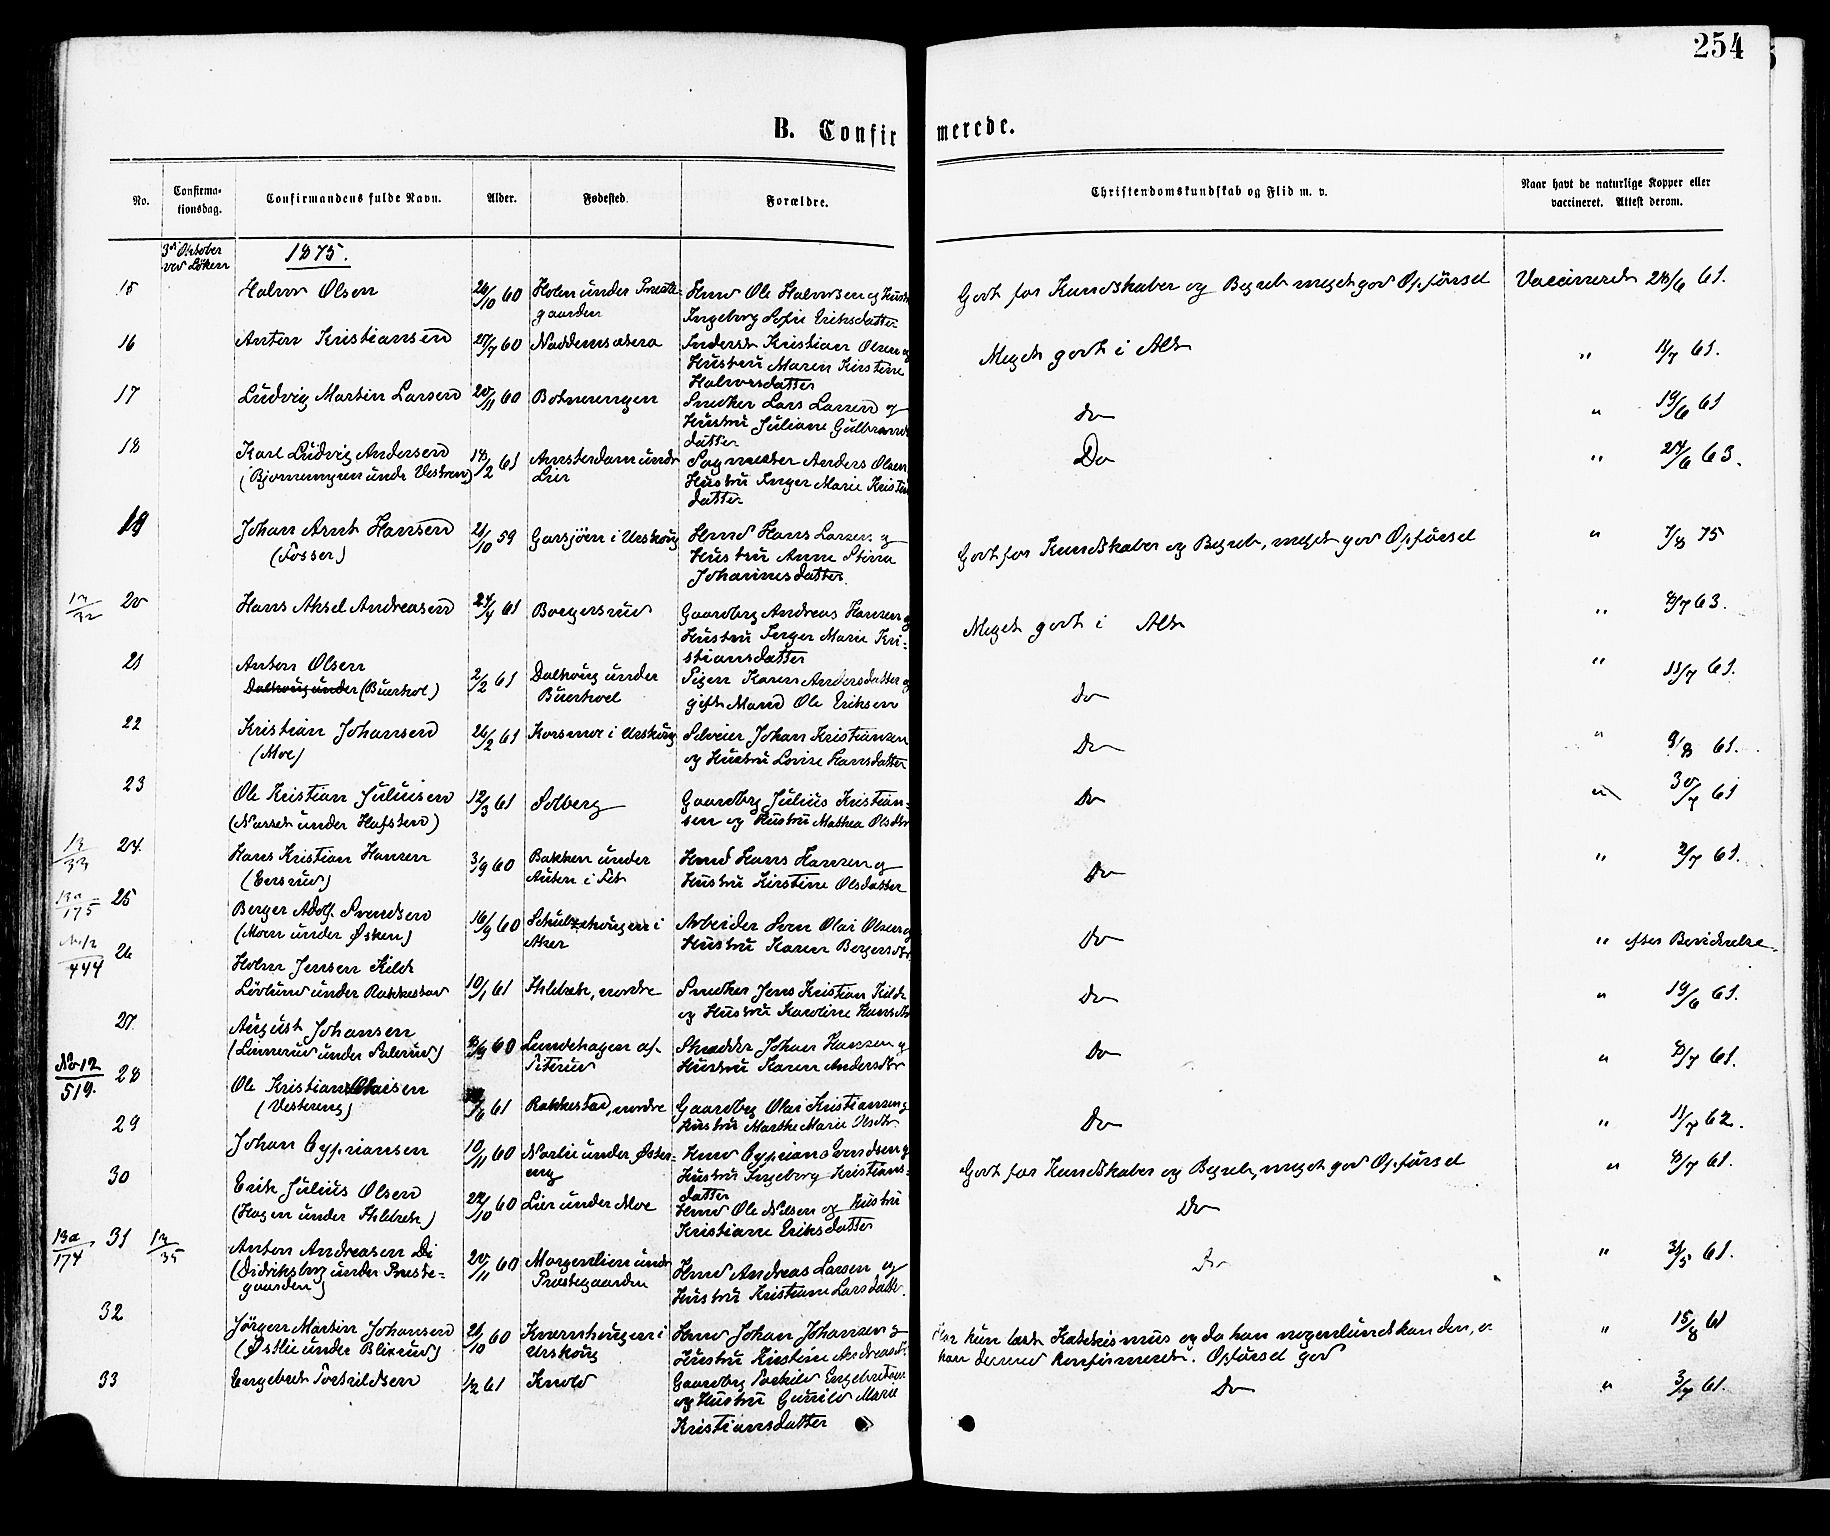 254
B. Confirmerede.
No.
Confirma-
tionsdag.
Confirmandens fulde Navn.
Alder.
Fødested.
Forældre.
Christendomskundskab og Flid m. v.
Naar havt de naturlige Kopper eller
vaccineret. Attest derom.
3die Oktober
ved Løken
1875.
15 Halvor Olsen 26/10 60 Holm under Præste-
gaarden
Hmd Ole Halvorsen og Hustru
Ingeborg Sofie Eriksdatter
Godt for Kundskaber og Begreb meget god Opførsel Vaccineret 28/6 61.
16 Anton Kristiansen 27/7 60 Noddemsætera
Inderst Kristian Olsen og
Hustru Maren Kirstine
Halvorsdatter
Meget godt i Alt " 11/7 61.
17 Ludvig Martin Larsen 20/11 60 Botnerengen
Snedker Lars Larsen og
Hustru Juliane Gulbrands
datter
do " 19/6 61
18 Karl Ludvig Andersen 18/2 61 Amsterdam undr
(Bjonnemyren under Vestreng) Lier
Sagmester Anders Olsen
Hustru Inger Marie Kristin
datter
Do " 27/6 63.
19 Johan Arnt Hansen 21/10 59 Garsjøen i Urskoug
(Fosser)
Hmd Hans Larsen og
Hustru Anne Stina
Johannesdatter.
Godt for Kundskaber og Begreb, meget god Opførsel " 7/8 75
20 Hans Aksel Andreasen 24/4 61 Boegersrud
Gaardbrg Andreas Hansen og
Hustru Inger Marie Kri-
stiansdatter
Meget godt i Alt " 8/7 63.
21 Anton Olsen 2/2 61 Dalhoug under
Dalhoug under (Buerhol) Buerhoel
Pigen Karen Andersdatter og
gift Mand Ole Eriksen
Do " 11/7 61.
22 Kristian Johansen 26/2 61 Korsmoe i Urskoug
(Moe)
Selveier Johan Kristiansen
og Hustru Lovise Hansdatter
Do " 9/8 61.
23 Ole Kristian Juliusen 12/3 61 Solberg
(Narset under Hafsten)
Gaardbrg Julius Kristian-
sen og Hustru Mathea Olsdtr
Do " 30/7 61
12/33 24. Hans Kristian Hansen 3/9 60 Bakken under
(Eersrud) Auten i Fet
Hmd Hans Hansen og
Hustru Kirstine Olsdatter
Do " 2/7 61.
13a/175 25 Berger Adolf Svendsen 16/9 60
(Moen under Øsken.) Aker
Arbeider Sven Olai Olsen og
Hustru Karen Bergersdtr
Do " efter Bevidnelse.
444 26 Holm Jensen Kilde 10/1 61 Hildreth, nordre
Løvlund under Rakkestad
Snedker Jens Kristian Kilde
og Hustru Karoline Hansdtr
Do " 19/6 61.
27. August Johansen 8/9 60 Lundehagen af
(Linnerud under Salerud) Siterud
Skrædder Johan Hansen og
Hustru Karen Andersdtr
Do " 8/7 61.
No 12/519. 28 Ole Kristian Olaisen /6 61 Rakkestad, nordre
(Vestreng)
Gaardbrg Olai Kristiansen og
Hustru Marthe Marie Olsdtr
Do " 11/7 62.
29 Johan Cypriansen 10/11 60 Norlie under Øster-
eng
Hmd Cyprian Svendsen og
Hustru Ingeborg Kristians-
datter
Godt for Kundskaber og Begreb, meget god Opførsel " 8/7 61.
30 Erik Julius Olsen 22/10 60 Lier under Moe
(Hagen under Hildreth)
Hmd Ole Nilsen og Hustru
Kristiane Eriksdatter
Do
13a/174 31 12/35 Anton Andreasen Di 20/11 60 Morgenlien undr
(Didriksbrg under Præste- Præstegaarden
gaarden)
Hmd Andreas Larsen og
Hustru Kristiane Larsdattr.
Do " 31/5 61.
32 Jørgen Martin Johansen 21/10 60 Kvernhougen i
(Østlie under Blixrud) Urskoug
Hmd Johan Johansen og
Hustru Kirstine Andreasdtr
Har kun læst Katekismus og da han nogenlunde kan den, er
han dermed konfirmeret. Opførsel god " 15/8 61
33 Engebret Torkildsen 1/2 61 Knold
Gaardbrg Torkild Engebretsen
og Hustru Gunild Marie
Kristiansdatter
Do " 3/7 61.